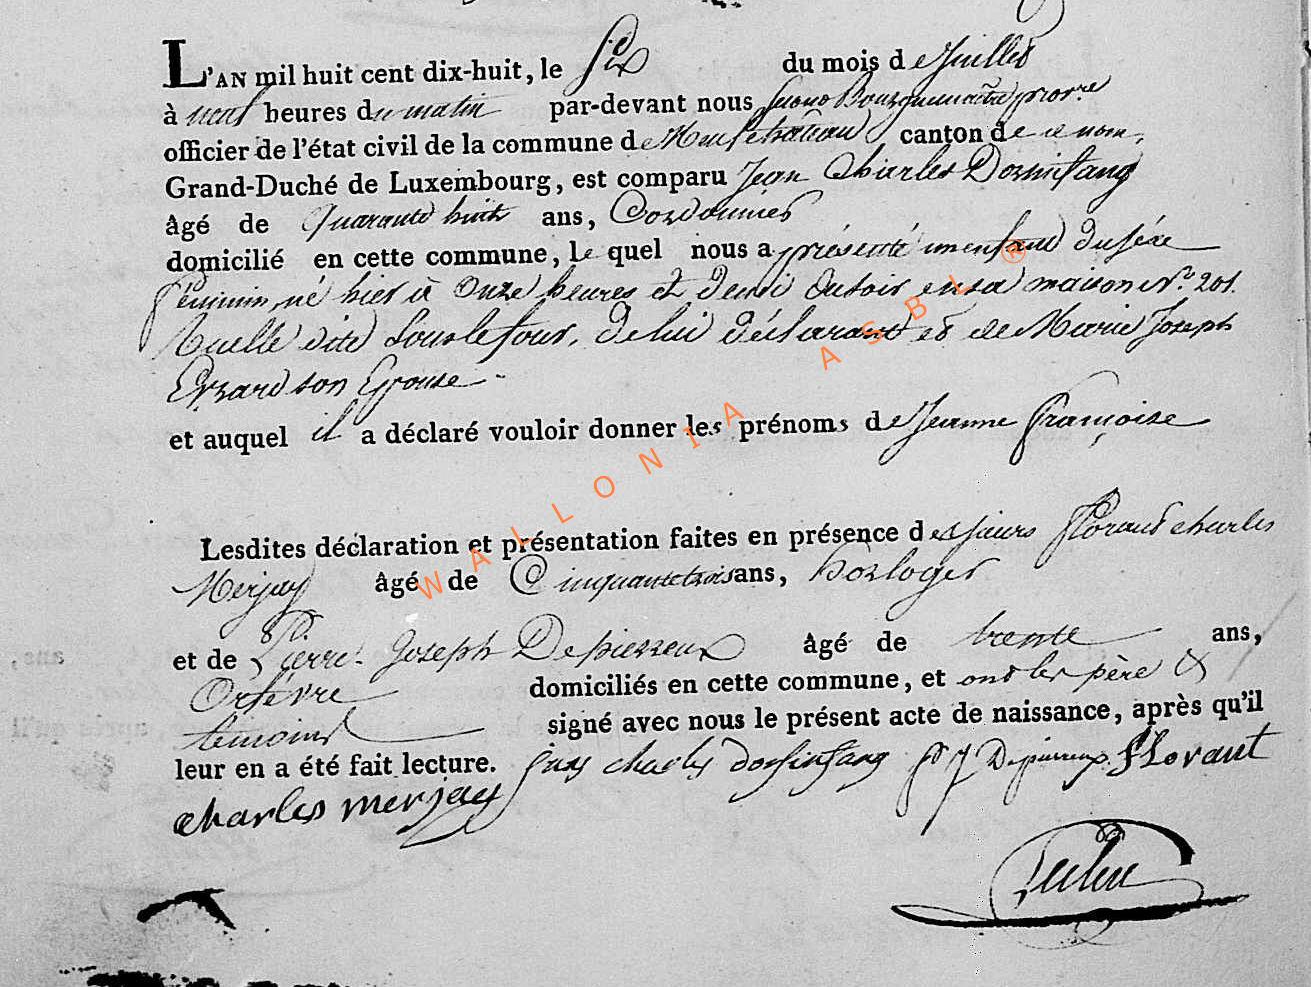 L'AN mil huit cent dix-huit, le Six du mois de Juillet
à neuf heures du matin par-devant nous Bourguemaître
officier de l'état civil de la commune de Neufchâteau canton de ce nom,
Grand-Duché de Luxembourg, est comparu Jean Charles Dorsinfang
âgé de Quarante huit ans, Cordonnier
domicilié en cette commune, lequel nous a présenté un enfant du séxe
féminin, né hier à Onze heures et demi du soir en sa maison N.o 201.
Ruelle dite Sous le four, de lui déclarant et de Marie Joseph
son Epouse -
et auquel il a déclaré vouloir donner les prénoms de Jeanne Françoise
Lesdites déclaration et présentation faites en présence des sieurs Florand Charles
Merjay âgé de Cinquante trois ans, horloger
et de Pierre Joseph Depierreux âgé de trente ans,
Orfévre domiciliés en cette commune, et ont les père &
témoins signé avec nous le présent acte de naissance, après qu'il
leur en a été fait lecture. jean charles dorsinfang P J Depierreux Florant
charles merjay
WALLONIA ASBL ®